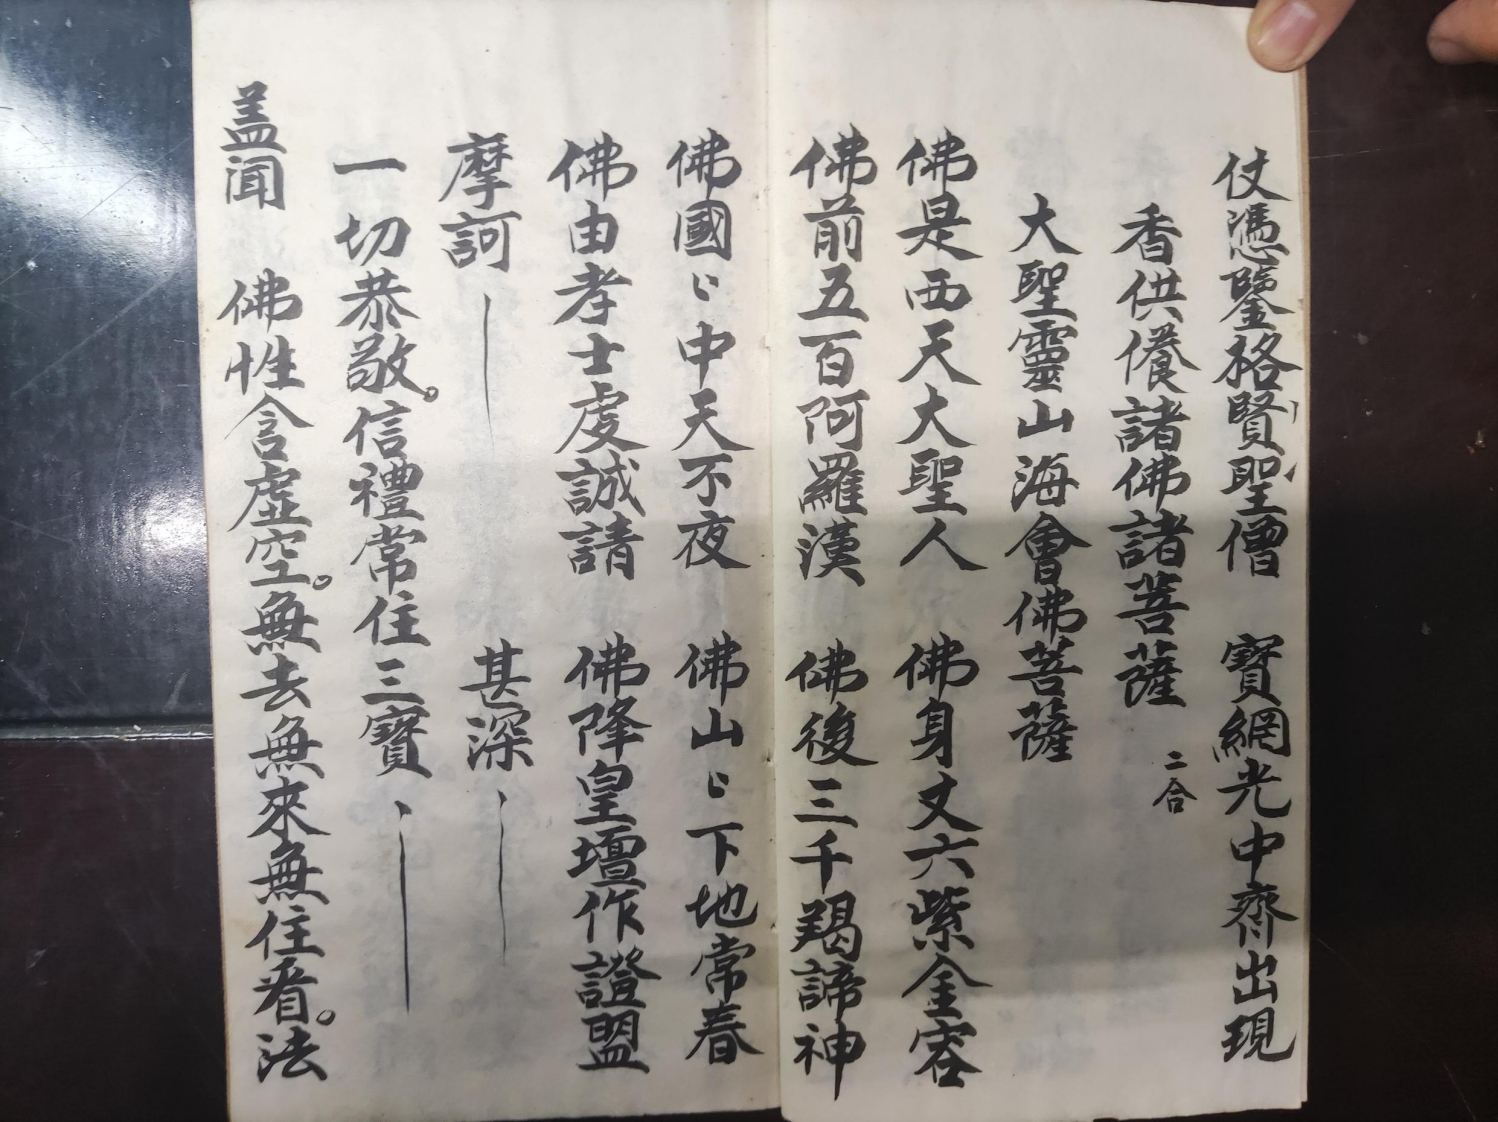 仗憑鑒格賢聖僧　寶網光中齊出現
香供養諸佛諸菩薩　二合
大聖靈山海會佛菩薩
佛是西天大聖人　佛身丈六紫金容
佛前五百阿羅漢　佛後三千羯諦神
佛國〻中天不夜　佛山〻下地常春
佛由孝士虔誠請　佛降皇壇作證盟
摩訶　甚深
一切恭敬。信禮常住三寶
盖聞　佛性含虛空。無去無來無住着。法